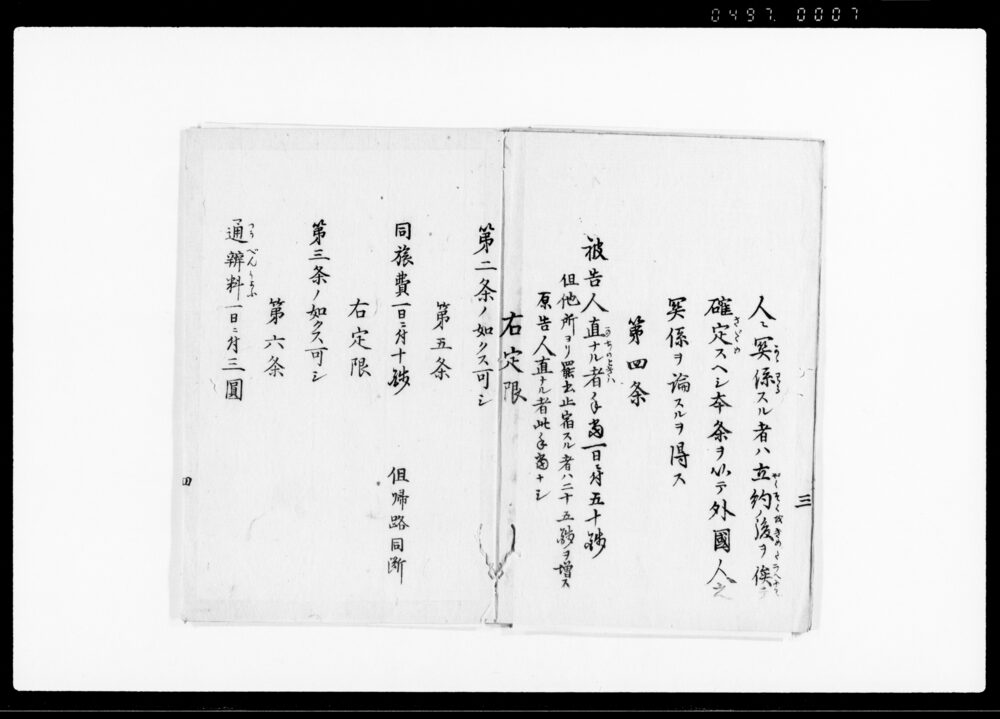 0497. 0007
三
人ニ関係スル者ハ立約ノ後ヲ俟テ
確定スヘシ本条ヲ以テ外國人之
関係ヲ論スルヲ得ス
第四条
被告人直ナル者手當一日ニ付五十銭
但他所ヨリ罷出止宿スル者ハ二十五銭ヲ増ス
原告人直ナル者此手當ナシ
右定限
第二条ノ如クス可シ
第五条
同旅費一日ニ付十銭 但帰路同断
右定限
第三条ノ如クス可シ
第六条
通辨料一日ニ付三圓
四